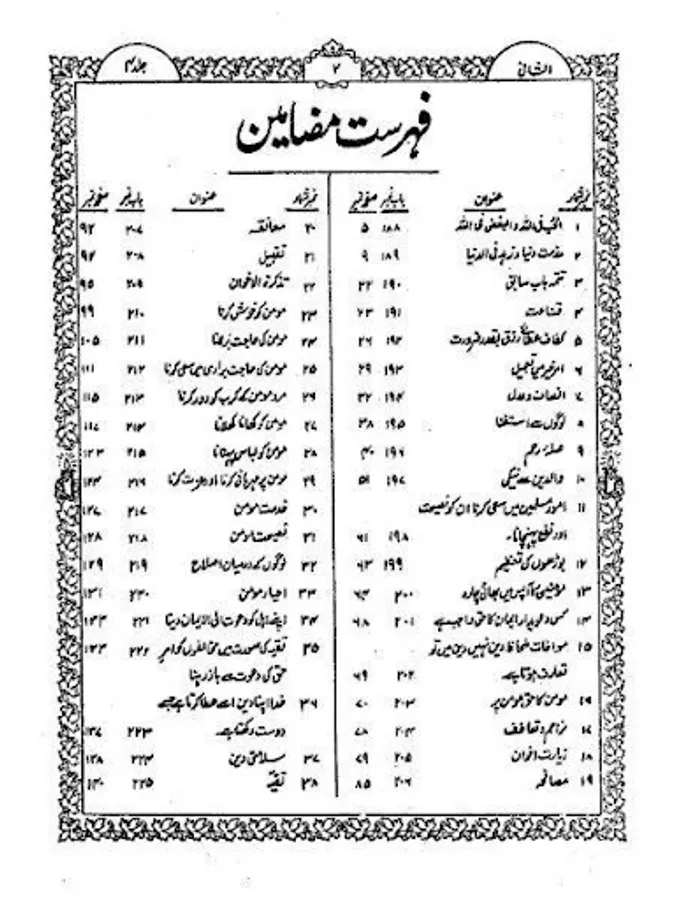 الشافی ۲ جلد ۴
فہرست مضامین
نمبر شمار عنوان باب نمبر صفحہ نمبر
۱ الحب فی اللہ والبغض فی اللہ ۱۸۸ ۵
۲ مذمت دنیا و زہد فی الدنیا ۱۸۹ ۹
۳ تتمہ باب سابق ۱۹۰ ۲۲
۴ قناعت ۱۹۱ ۲۳
۵ کفاف رزق بقدر ضرورت ۱۹۲ ۲۶
۶ امر خیر میں تعجیل ۱۹۳ ۲۹
۷ انصاف و عدل ۱۹۴ ۳۲
۸ لوگوں سے استغنا ۱۹۵ ۳۸
۹ صلہ رحم ۱۹۶ ۴۰
۱۰ والدین سے نیکی ۱۹۷ ۵۱
۱۱ امور مسلمین میں سعی کرنا ان کو نصیحت
اور نفع پہنچانا۔ ۱۹۸ ۶۱
۱۲ بوڑھوں کی تعظیم ۱۹۹ ۶۳
۱۳ مومنین کا آپس میں بھائی چارہ ۲۰۰ ۶۴
۱۴ کس دعویدار ایمان کا حق واجب ہے ۲۰۱ ۶۸
۱۵ مواخات دین نہیں دین میں تو
تعارف ہوتا ہے ۲۰۲ ۶۹
۱۶ مومن کا حق مومن پر ۲۰۳ ۷۰
۱۷ تراحم و تعاطف ۲۰۴ ۷۸
۱۸ زیارت اخوان ۲۰۵ ۷۹
۱۹ مصافحہ ۲۰۶ ۸۵
نمبر شمار عنوان باب نمبر صفحہ نمبر
۲۰ معانقہ ۲۰۷ ۹۲
۲۱ تقبیل ۲۰۸ ۹۴
۲۲ تذکرۃ الاخوان ۲۰۹ ۹۵
۲۳ مومن کو خوش کرنا ۲۱۰ ۹۹
۲۴ مومن کی حاجت بر لانا ۲۱۱ ۱۰۵
۲۵ مومن کی حاجت براری میں سعی کرنا ۲۱۲ ۱۱۱
۲۶ مرد مومن کے کرب کو دور کرنا ۲۱۳ ۱۱۵
۲۷ مومن کو کھانا کھلانا ۲۱۴ ۱۱۷
۲۸ مومن کو لباس پہنانا ۲۱۵ ۱۲۳
۲۹ مومن پر مہربانی کرنا اور عزت کرنا ۲۱۶ ۱۲۴
۳۰ خدمت مومن ۲۱۷ ۱۲۷
۳۱ نصیحت مومن ۲۱۸ ۱۲۸
۳۲ لوگوں کے درمیان اصلاح ۲۱۹ ۱۲۹
۳۳ احیاء مومن ۲۲۰ ۱۳۱
۳۴ اپنے اہل کو دعوت الی الایمان دینا ۲۲۱ ۱۳۳
۳۵ تقیہ کی صورت میں مخالفوں کو امر ۲۲۲ ۱۳۳
حق کی دعوت سے باز رہنا
۳۶ خدا اپنا دین اسے عطا کرتا ہے جسے
دوست رکھتا ہے ۲۲۳ ۱۳۷
۳۷ سلامتی دین ۲۲۴ ۱۳۸
۳۸ تقیہ ۲۲۵ ۱۴۰